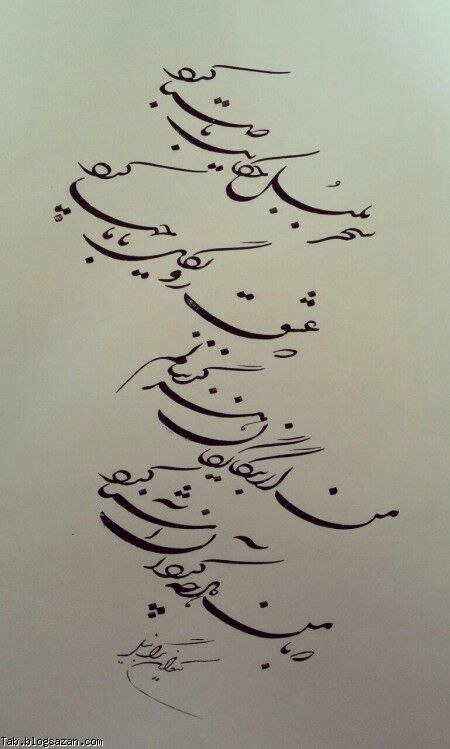 سحر بلبل حکایت با صبا کرد
که عشق روی گل با ما چها کرد
من از بیگانگان هرگز ننالم
که با من هرچه کرد آن آشنا کرد
Tab.blogsazan.com